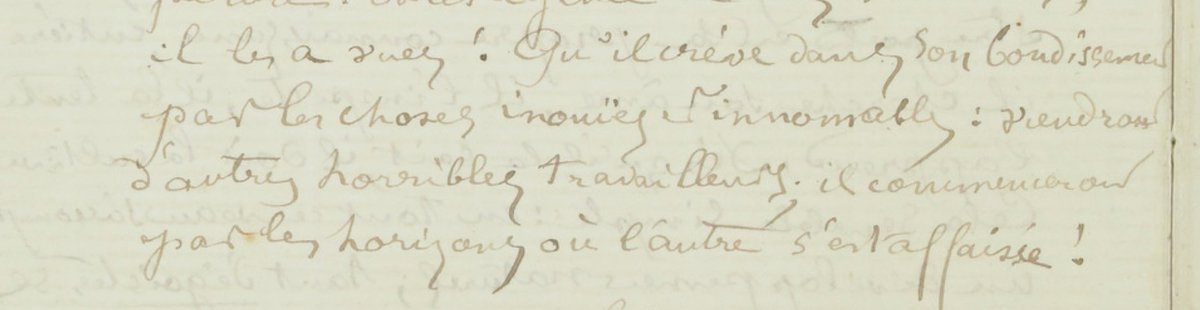 il les a vues ! Qu'il crève dans son bondissement
par les choses inouïes et innomables : viendront
d'autres horribles travailleurs ; il commenceront
par les horizons où l'autre s'est affaissé !